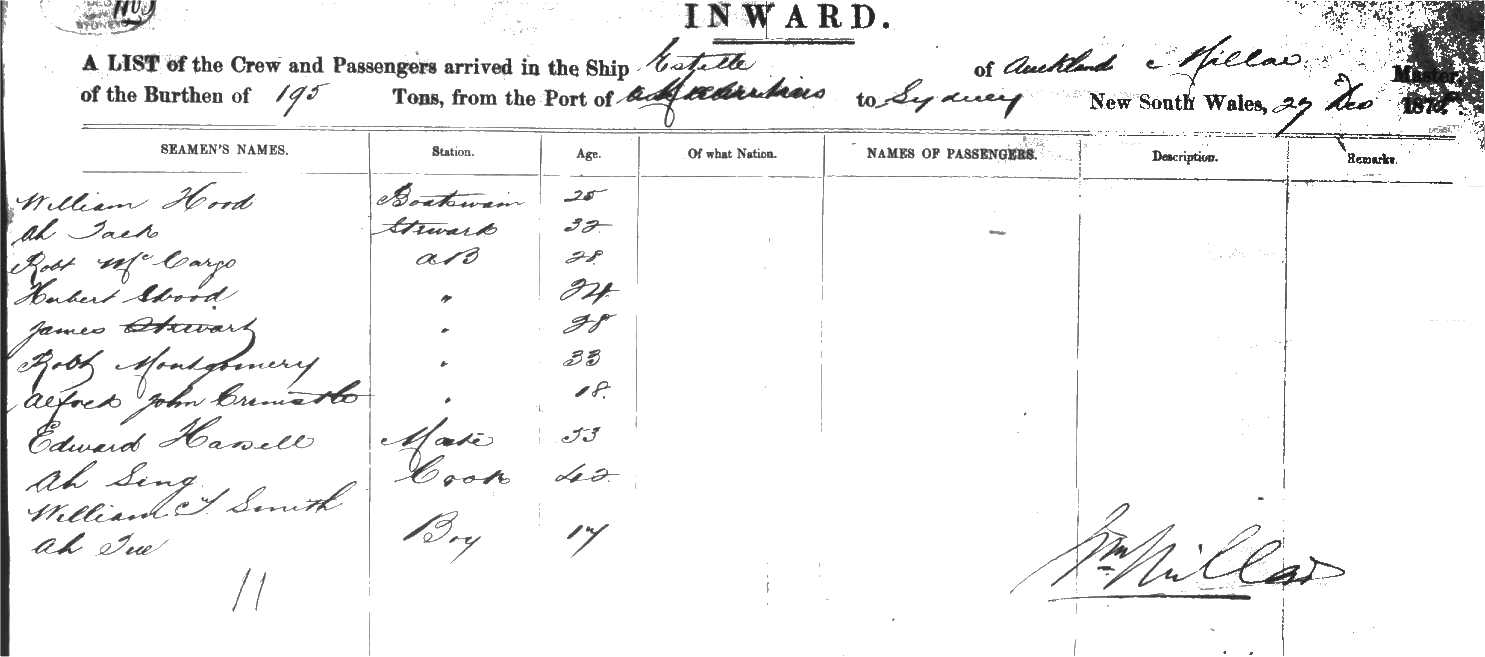 INWARD.
A LIST of the Crew and Passengers arrived in the Ship Estelle of Auckland Millar Master
of the Burthen of 195 Tons, from the Port of Mauritius to Sydney New South Wales, 27 Dec 187
SEAMEN'S NAMES. Station. Age. Of what Nation. NAMES OF PASSENGERS. Description. Remarks.
William Hood Boatswain 25
Ah Jack Steward 32
Robt McCargo AB 28
Herbert Strood " 24
James Stewart " 28
Robt Montgomery " 33
Alfred John " 18
Edward Hassell Mate 53
Ah Sing Cook 42
William T. Smith
Ah Boy 17
Wm Millar
11